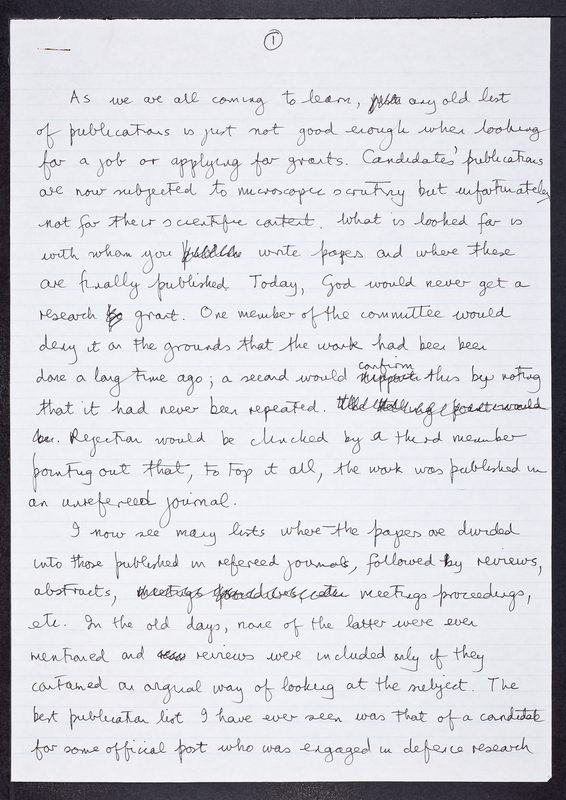 1
As we are all coming to learn, any old list
of publications is just not good enough when looking
for a job or applying for grants. Candidates' publications
are now subjected to microscopic scrutiny but unfortunately
not for their scientific content. What is looked for is
with whom you write papers and where these
are finally published. Today, God would never get a
research grant. One member of the committee would
deny it on the grounds that the work had been been
done a long time ago; a second would confirm this by noting
that it had never been repeated.
Rejection would be clinched by a third member
pointing out that, to top it all, the work was published in
an unrefereed journal.
I now see many lists where the papers are divided
into those published in refereed journals, followed by reviews,
abstracts, meetings proceedings,
etc. In the old days, none of the latter were ever
mentioned and reviews were included only if they
contained an orginal way of looking at the subject. The
best publication list I have ever seen was that of a candidate
for some official post who was engaged in defence research